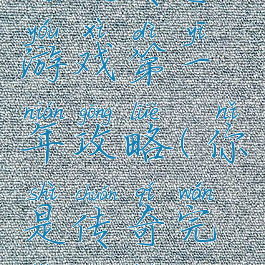 yóu xì dì yī
游戏第一
nián gōng lüè nǐ
年攻略(你
shì chuán qí wán
是传奇完